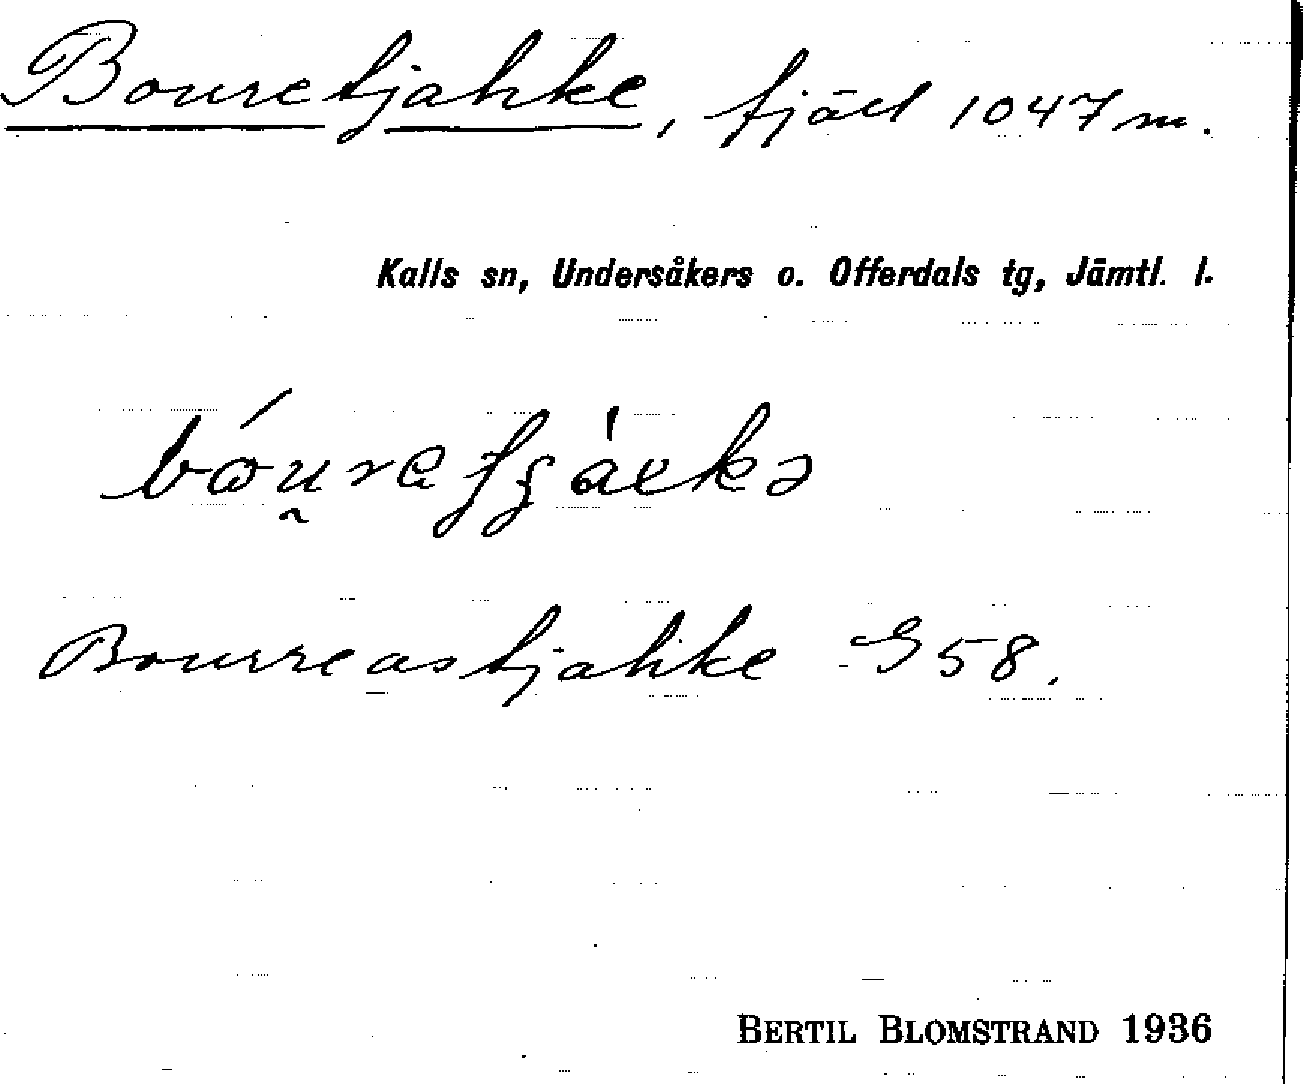 Bouretjahke, fjäll 1047 m.
Kalls sn, Undersåkers o. Offerdals tg, Jämtl. l.
Bourreastjahke G 58.
BERTIL BLOMSTRAND 1936